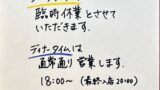 臨時休業とさせて
いただきます。
ディナータイムは
通常通り営業します。
18:00〜（最終入店20:00）